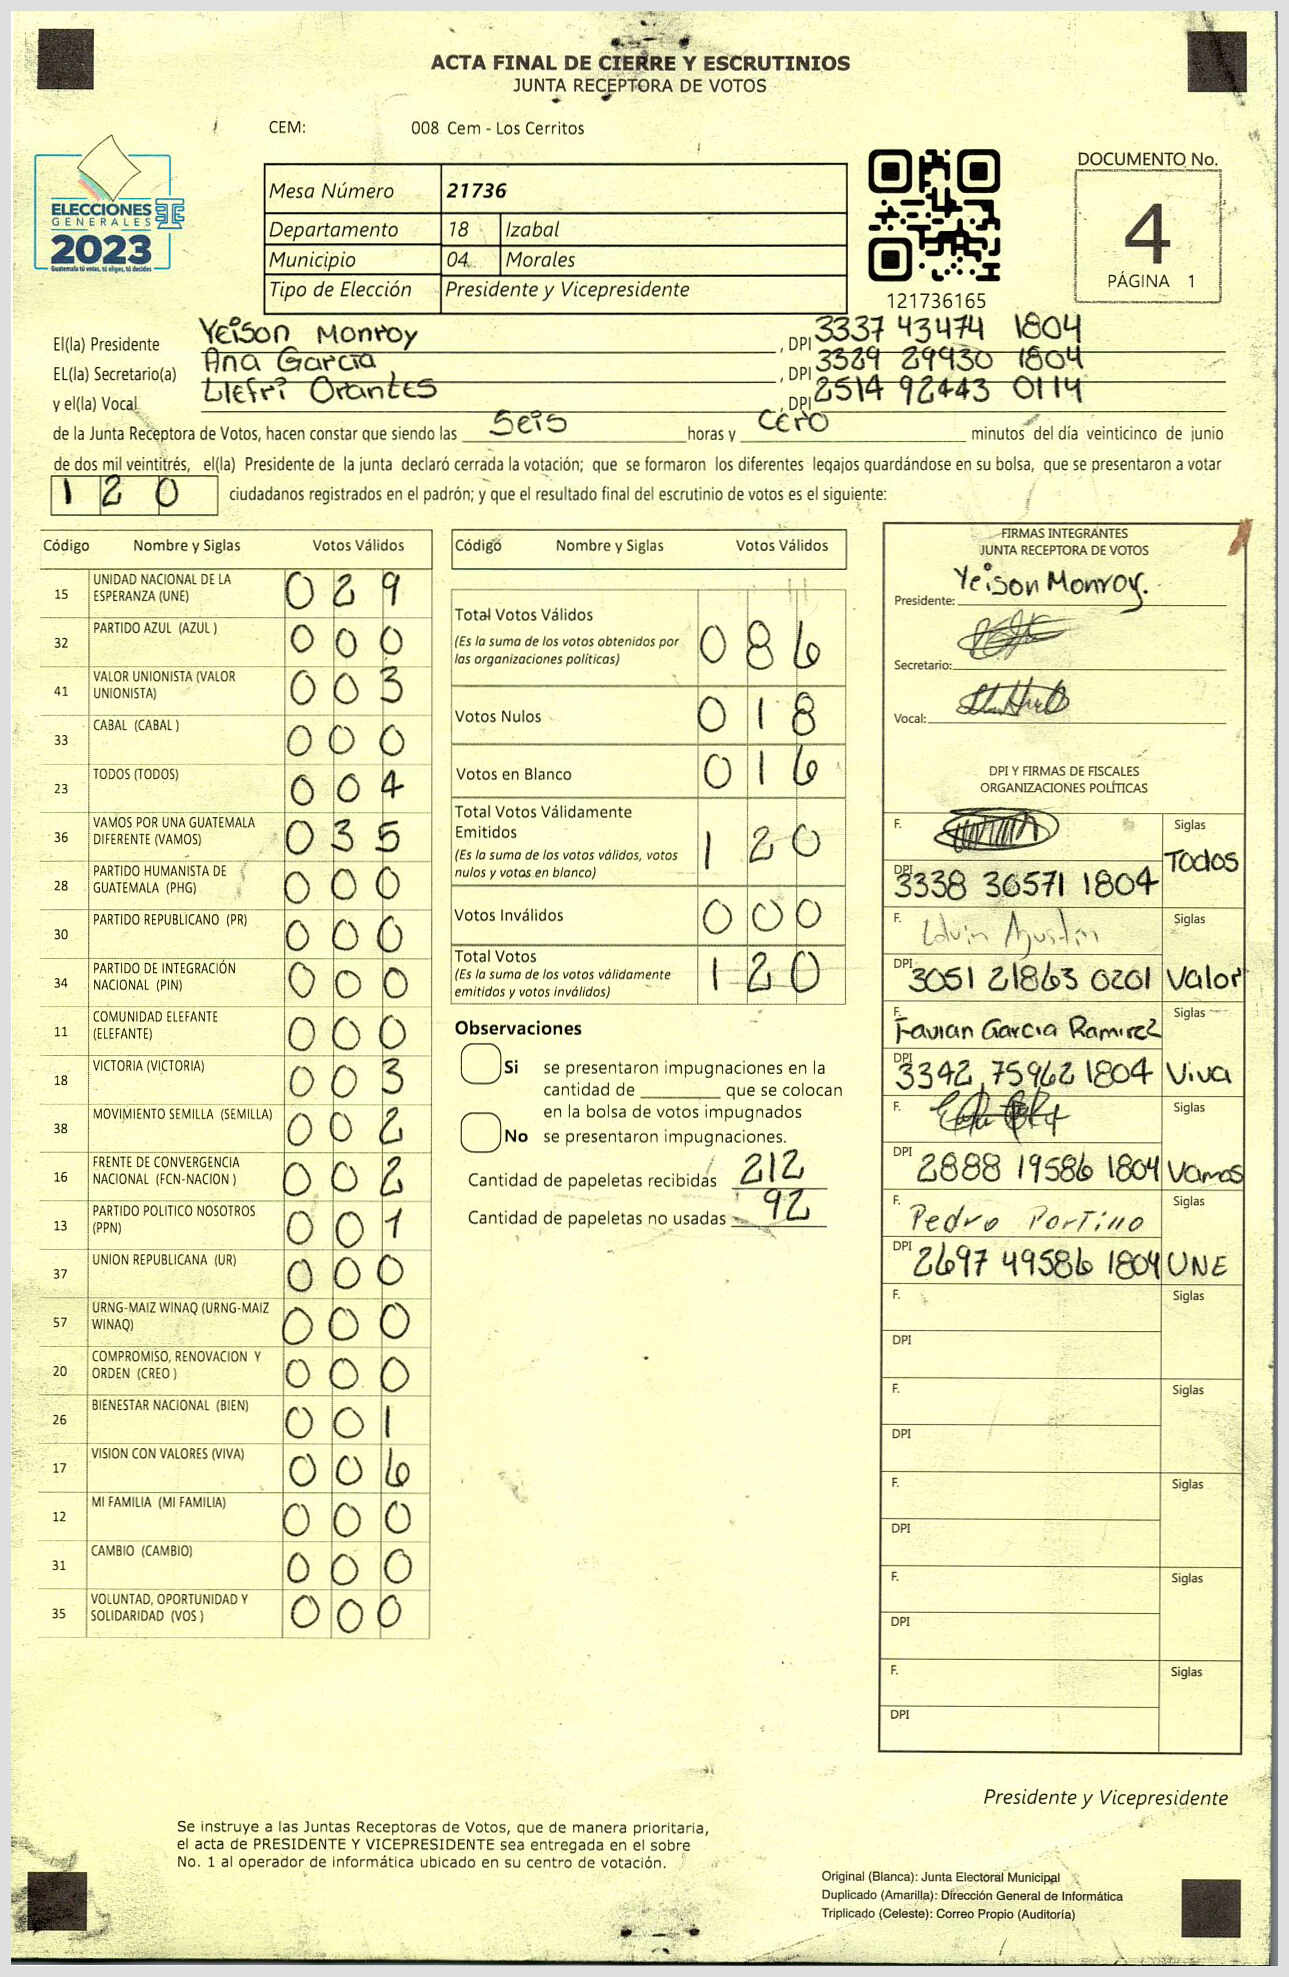 ACTA FINAL DE CIERRE Y ESCRUTINIOS
JUNTA RECEPTORA DE VOTOS
CEM: 008 Cem - Los Cerritos
ELECCIONES
GENERALES
2023
Guatemala tú votas, tú eliges, tú decides
Mesa Número 21736
Departamento 18 Izabal
Municipio 04 Morales
Tipo de Elección Presidente y Vicepresidente
121736165
DOCUMENTO No.
4
PÁGINA 1
El(la) Presidente Yeison Monroy , DPI 3337 43474 1804
EL(la) Secretario(a) Ana Garcia , DPI 3329 29930 1804
y el(la) Vocal Llefri Orantes , DPI 2514 92443 0114
de la Junta Receptora de Votos, hacen constar que siendo las Seis horas y Cero minutos del día veinticinco de junio
de dos mil veintitrés, el(la) Presidente de la junta declaró cerrada la votación; que se formaron los diferentes legajos guardándose en su bolsa, que se presentaron a votar
120 ciudadanos registrados en el padrón; y que el resultado final del escrutinio de votos es el siguiente:
Código Nombre y Siglas Votos Válidos
15 UNIDAD NACIONAL DE LA ESPERANZA (UNE) 029
32 PARTIDO AZUL (AZUL ) 000
41 VALOR UNIONISTA (VALOR UNIONISTA) 003
33 CABAL (CABAL ) 000
23 TODOS (TODOS) 004
36 VAMOS POR UNA GUATEMALA DIFERENTE (VAMOS) 035
28 PARTIDO HUMANISTA DE GUATEMALA (PHG) 000
30 PARTIDO REPUBLICANO (PR) 000
34 PARTIDO DE INTEGRACIÓN NACIONAL (PIN) 000
11 COMUNIDAD ELEFANTE (ELEFANTE) 000
18 VICTORIA (VICTORIA) 003
38 MOVIMIENTO SEMILLA (SEMILLA) 002
16 FRENTE DE CONVERGENCIA NACIONAL (FCN-NACION ) 002
13 PARTIDO POLITICO NOSOTROS (PPN) 001
37 UNION REPUBLICANA (UR) 000
57 URNG-MAIZ WINAQ (URNG-MAIZ WINAQ) 000
20 COMPROMISO, RENOVACION Y ORDEN (CREO ) 000
26 BIENESTAR NACIONAL (BIEN) 001
17 VISION CON VALORES (VIVA) 006
12 MI FAMILIA (MI FAMILIA) 000
31 CAMBIO (CAMBIO) 000
35 VOLUNTAD, OPORTUNIDAD Y SOLIDARIDAD (VOS ) 000
Código Nombre y Siglas Votos Válidos
Total Votos Válidos 086
(Es la suma de los votos obtenidos por
las organizaciones políticas)
Votos Nulos 018
Votos en Blanco 016
Total Votos Válidamente
Emitidos 120
(Es la suma de los votos válidos, votos
nulos y votos en blanco)
Votos Inválidos 000
Total Votos 120
(Es la suma de los votos válidamente
emitidos y votos inválidos)
Observaciones
Si se presentaron impugnaciones en la
cantidad de ________ que se colocan
en la bolsa de votos impugnados
No se presentaron impugnaciones.
Cantidad de papeletas recibidas 212
Cantidad de papeletas no usadas 92
FIRMAS INTEGRANTES
JUNTA RECEPTORA DE VOTOS
Presidente: Yeison Monroy.
Secretario:
Vocal:
DPI Y FIRMAS DE FISCALES
ORGANIZACIONES POLÍTICAS
F. Siglas
DPI 3338 36571 1804 Todos
F. Edvin Agustin Siglas
DPI 3051 21863 0201 Valor
F. Favian Garcia Ramirez Siglas
DPI 3342 75962 1804 Viva
F. Siglas
DPI 2888 19586 1804 Vamos
F. Pedro Portillo Siglas
DPI 2697 49586 1804 UNE
F. Siglas
DPI
F. Siglas
DPI
F. Siglas
DPI
F. Siglas
DPI
F. Siglas
DPI
Presidente y Vicepresidente
Se instruye a las Juntas Receptoras de Votos, que de manera prioritaria,
el acta de PRESIDENTE Y VICEPRESIDENTE sea entregada en el sobre
No. 1 al operador de informática ubicado en su centro de votación.
Original (Blanca): Junta Electoral Municipal
Duplicado (Amarilla): Dirección General de Informática
Triplicado (Celeste): Correo Propio (Auditoría)